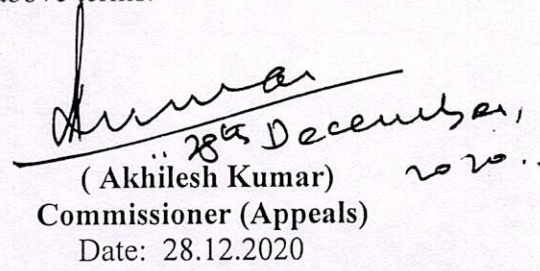 above terms.
Kumar
28th December,
2020..
( Akhilesh Kumar)
Commissioner (Appeals)
Date: 28.12.2020